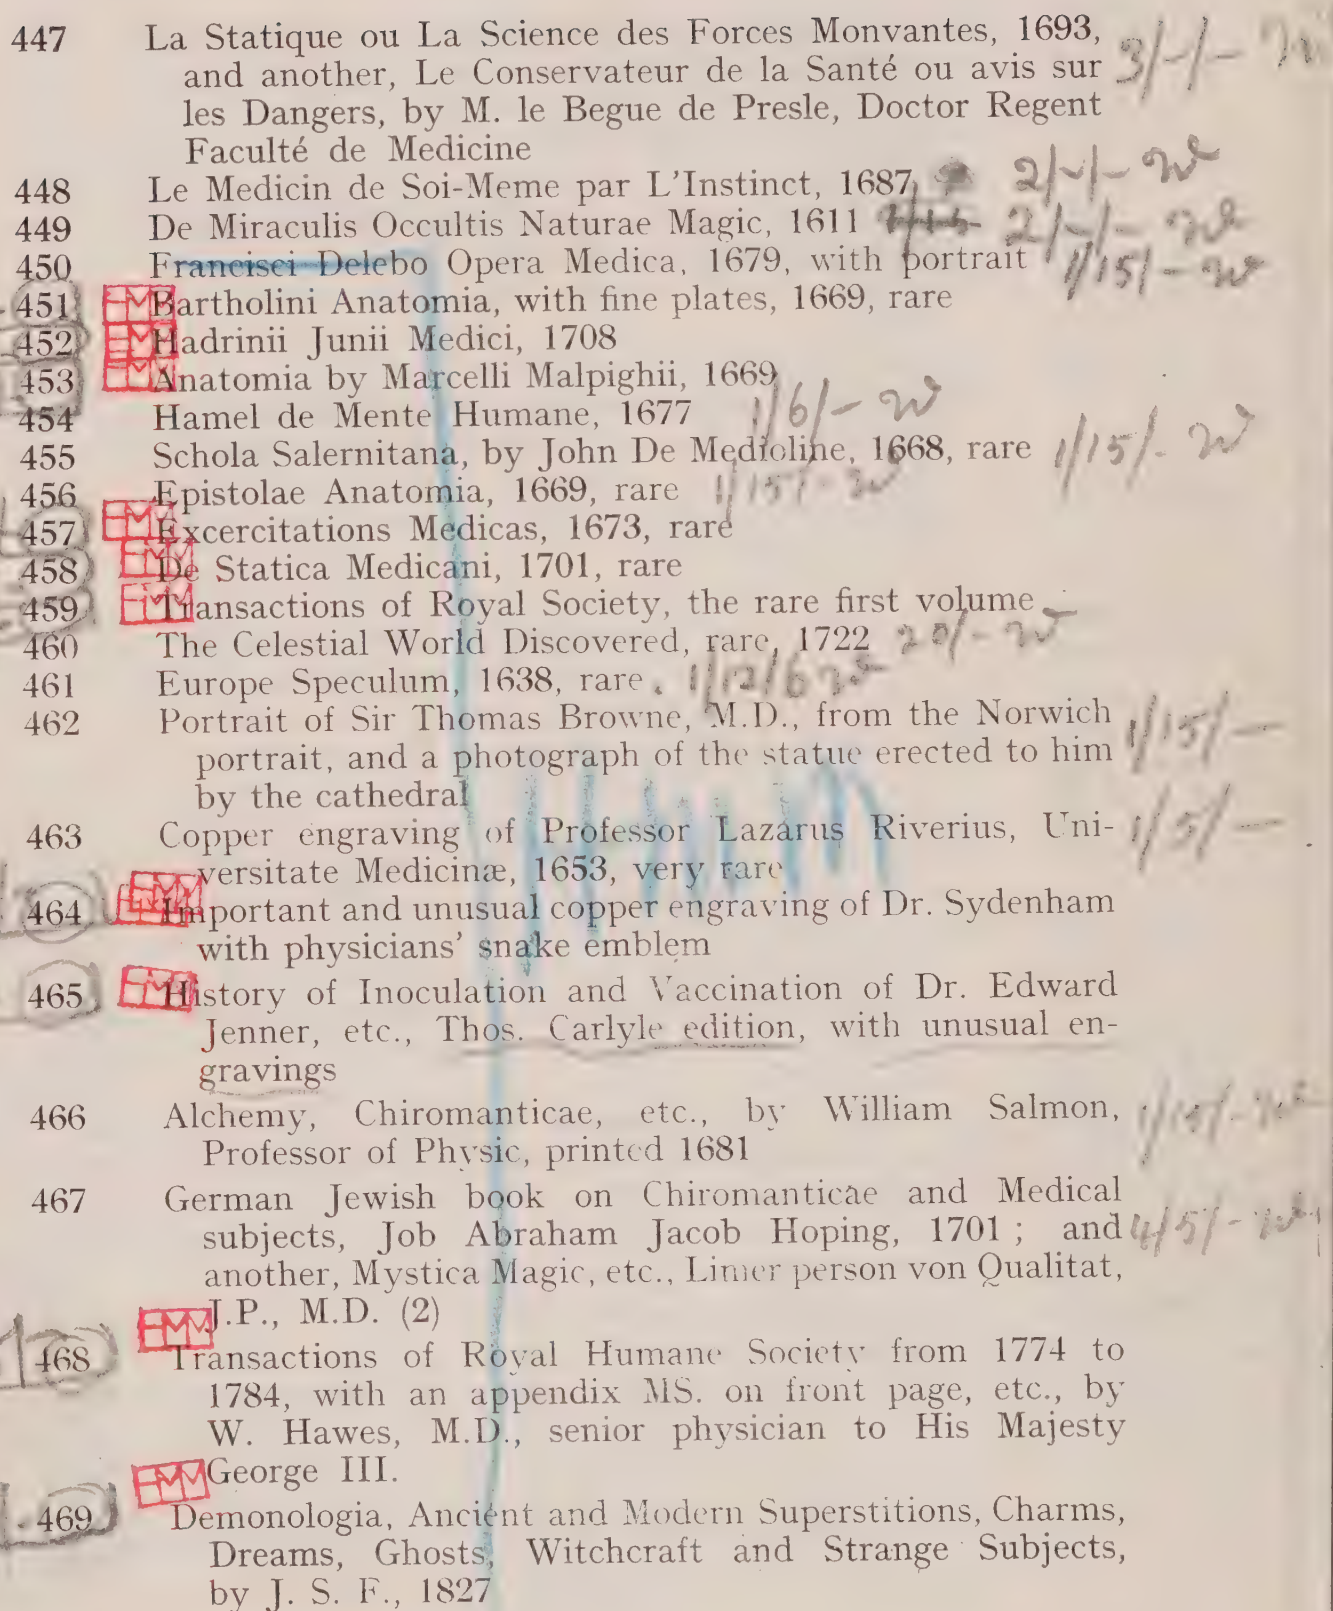 447 La Statique ou La Science des Forces Monvantes, 1693, 3/-/-
and another, Le Conservateur de la Santé ou avis sur
les Dangers, by M. le Begue de Presle, Doctor Regent
Faculté de Medicine
448 Le Medicin de Soi-Meme par L'Instinct, 1687, 2/-/- W
449 De Miraculis Occultis Naturae Magic, 1611 2/-/- W
450 Francisei Delebo Opera Medica, 1679, with portrait 1/15/- W
451 EMM Bartholini Anatomia, with fine plates, 1669, rare
452 EMM Hadrinii Junii Medici, 1708
453 EMM Anatomia by Marcelli Malpighii, 1669
454 Hamel de Mente Humane, 1677 1/6/- W
455 Schola Salernitana, by John De Medioline, 1668, rare 1/15/- W
456 Epistolae Anatomia, 1669, rare 1/15/- W
457 EMM Excercitations Medicas, 1673, rare
458 EMM De Statica Medicani, 1701, rare
459 EMM Transactions of Royal Society, the rare first volume
460 The Celestial World Discovered, rare, 1722 20/- W
461 Europe Speculum, 1638, rare. 1/12/6 W
462 Portrait of Sir Thomas Browne, M.D., from the Norwich 1/15/-
portrait, and a photograph of the statue erected to him
by the cathedral
463 Copper engraving of Professor Lazarus Riverius, Uni- 1/5/-
versitate Medicinæ, 1653, very rare
464 EMM Important and unusual copper engraving of Dr. Sydenham
with physicians' snake emblem
465 EMM History of Inoculation and Vaccination of Dr. Edward
Jenner, etc., Thos. Carlyle edition, with unusual en-
gravings
466 Alchemy, Chiromanticae, etc., by William Salmon, 1/15/- W
Professor of Physic, printed 1681
467 German Jewish book on Chiromanticae and Medical
subjects, Job Abraham Jacob Hoping, 1701 ; and 4/5/- W
another, Mystica Magic, etc., Limer person von Qualitat,
J.P., M.D. (2)
468 EMM Transactions of Royal Humane Society from 1774 to
1784, with an appendix MS. on front page, etc., by
W. Hawes, M.D., senior physician to His Majesty
George III.
469 EMM Demonologia, Ancient and Modern Superstitions, Charms,
Dreams, Ghosts, Witchcraft and Strange Subjects,
by J. S. F., 1827